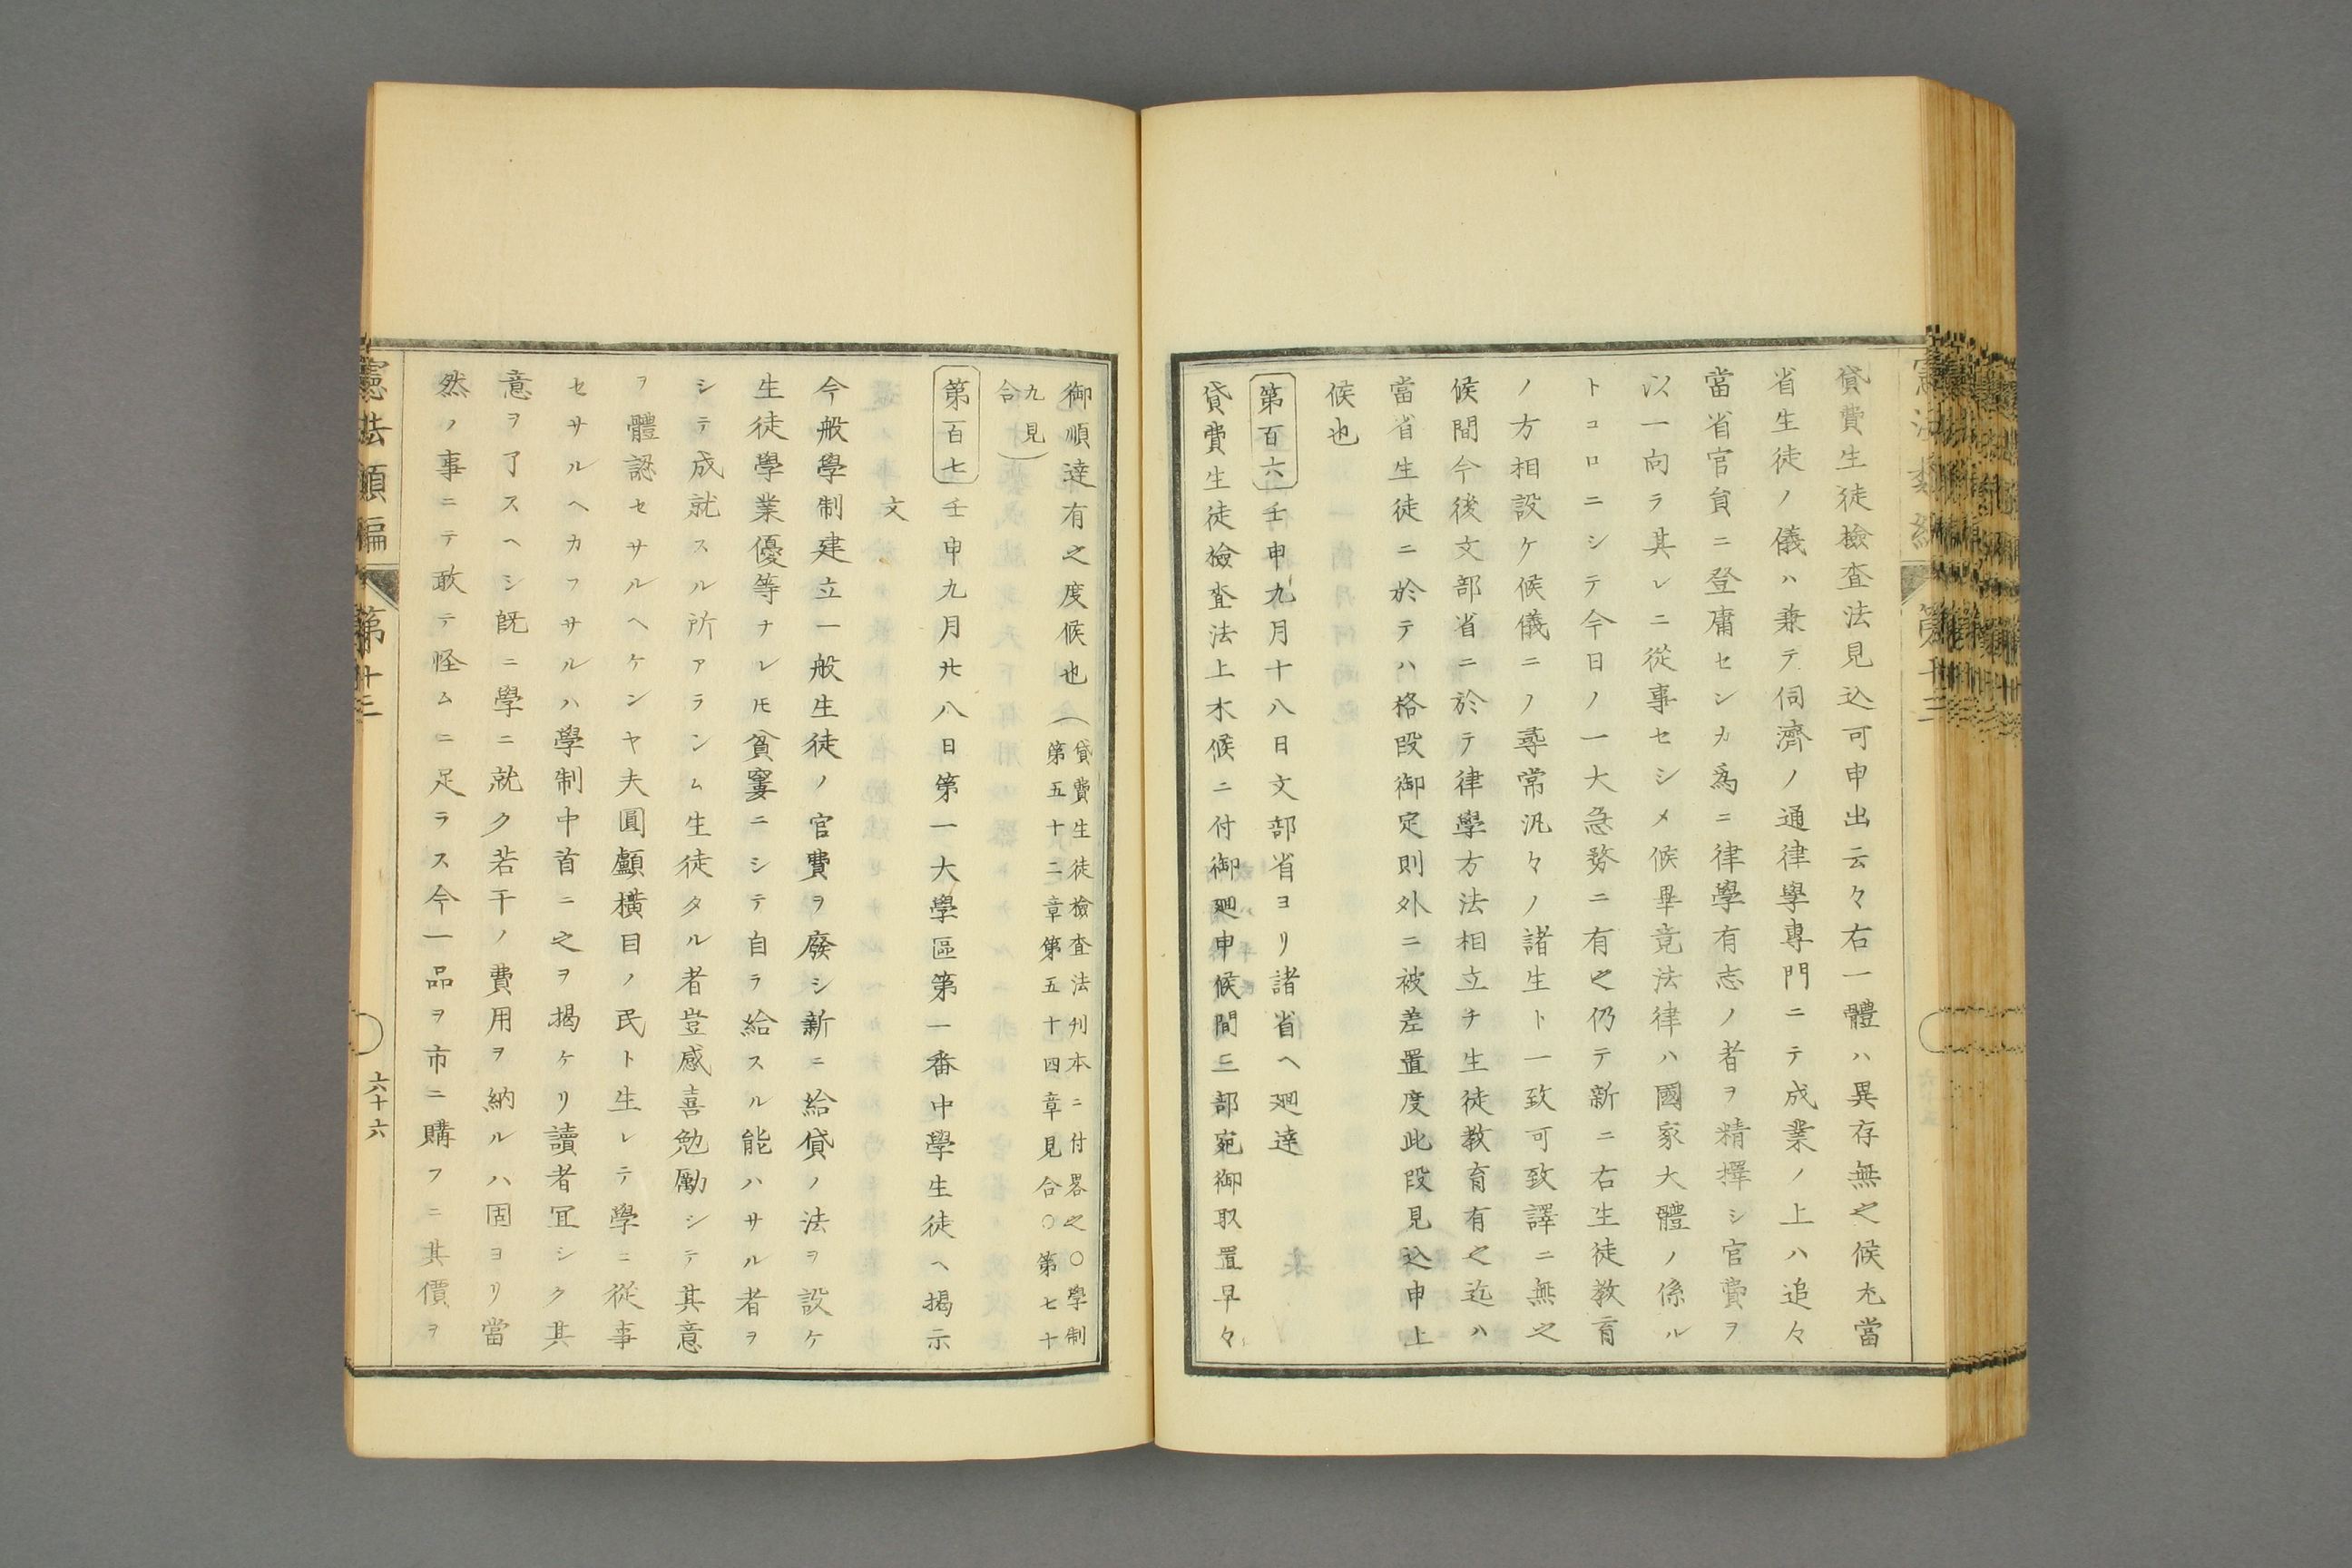 貸費生徒檢査法見込可申出云々右一體ハ異存無之候尤當
省生徒ノ儀ハ兼テ伺濟ノ通律學專門ニテ成業ノ上ハ追々
當省官員ニ登庸セシカ爲ニ律學有志ノ者ヲ精擇シ官費ヲ
以一向ラ其レニ從事セシメ候畢竟法律ハ國家大體ノ係ル
トコロニシテ今日ノ一大急務ニ有之仍テ新ニ右生徒教育
ノ方相設ケ候儀ニノ尋常汎々ノ諸生ト一致可致譯ニ無之
候間今後文部省ニ於テ律學方法相立チ生徒教育有之迄ハ
當省生徒ニ於テハ格段御定則外ニ被差置度此段見込申上
候也
第百六 壬申九月十八日文部省ヨリ諸省ヘ廻達
貸費生徒檢査法上木候ニ付御廻申候間三部宛御取置早々
御順達有之度候也(貸費生徒檢査法刊本ニ付畧之〇學制
第五十二章第五十四章見合〇第七十
九見
合)
第百七 壬申九月廿八日第一大學區第一番中學生徒ヘ揭示
文
今般學制建立一般生徒ノ官費ヲ廢シ新ニ給貸ノ法ヲ設ケ
生徒學業優等ナレ𪜈貧窶ニシテ自ラ給スル能ハサル者ヲ
シテ成就スル所アランム生徒タル者豈感喜勉勵シテ其意
ヲ體認セサルヘケンヤ夫圓顱橫目ノ民ト生レテ學ニ從事
セサルヘカラサルハ學制中首ニ之ヲ揭ケリ讀者冝シク其
意ヲ了スヘシ既ニ學ニ就ク若干ノ費用ヲ納ルハ固ヨリ當
然ノ事ニテ敢テ怪ムニ足ラス今一品ヲ市ニ購フニ其價ヲ
憲法類編 第十三
六十六